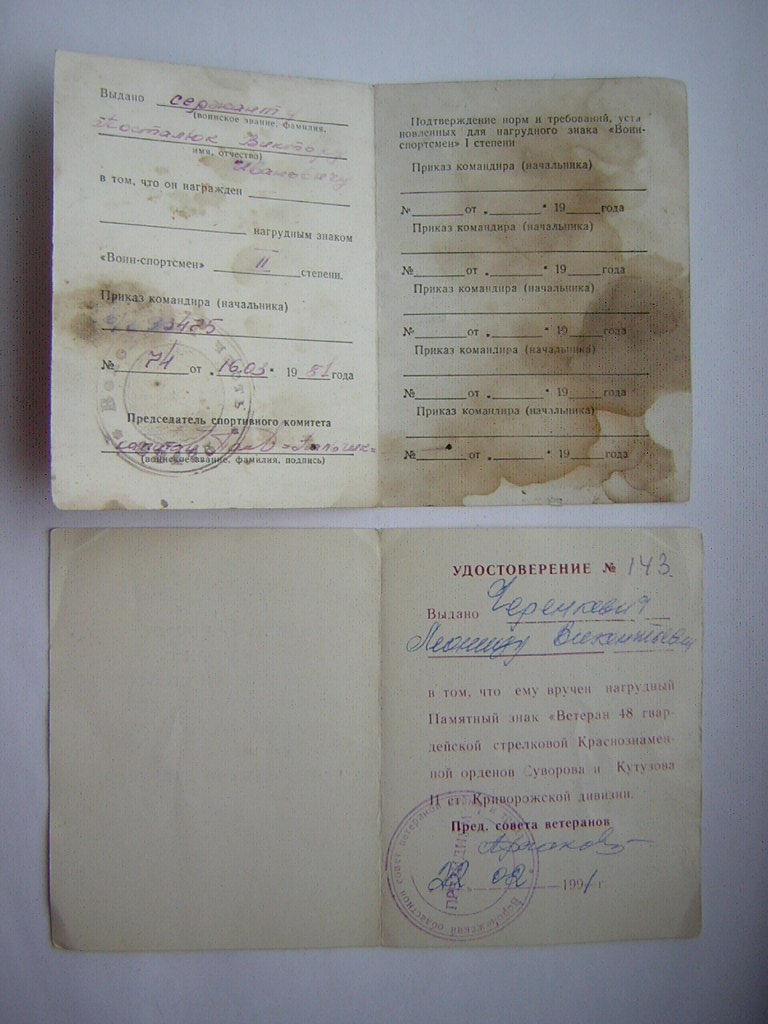 Выдано сержанту
(воинское звание, фамилия,
Косталюк Виктору
имя, отчество)
Ивановичу
в том, что он награжден
нагрудным знаком
«Воин-спортсмен» II степени.
Приказ командира (начальника)
в/ч 33475
№ 74 от „16.05" 1981 года
Председатель спортивного комитета
капитан
(воинское звание, фамилия, подпись)
Подтверждение норм и требований, уста
новленных для нагрудного знака «Воин-
спортсмен» I степени
Приказ командира (начальника)
№ от „ " 19 года
Приказ командира (начальника)
№ от „ " 19 года
Приказ командира (начальника)
№ от „ " 19 года
Приказ командира (начальника)
№ от „ " 19 года
Приказ командира (начальника)
№ от „ " 19 года
УДОСТОВЕРЕНИЕ № 143
Выдано
Леониду
в том, что ему вручен нагрудный
Памятный знак «Ветеран 48 гвар-
дейской стрелковой Краснознамен-
ной орденов Суворова и Кутузова
II ст. Криворожской дивизии.
Пред. совета ветеранов
22 02 1991 г